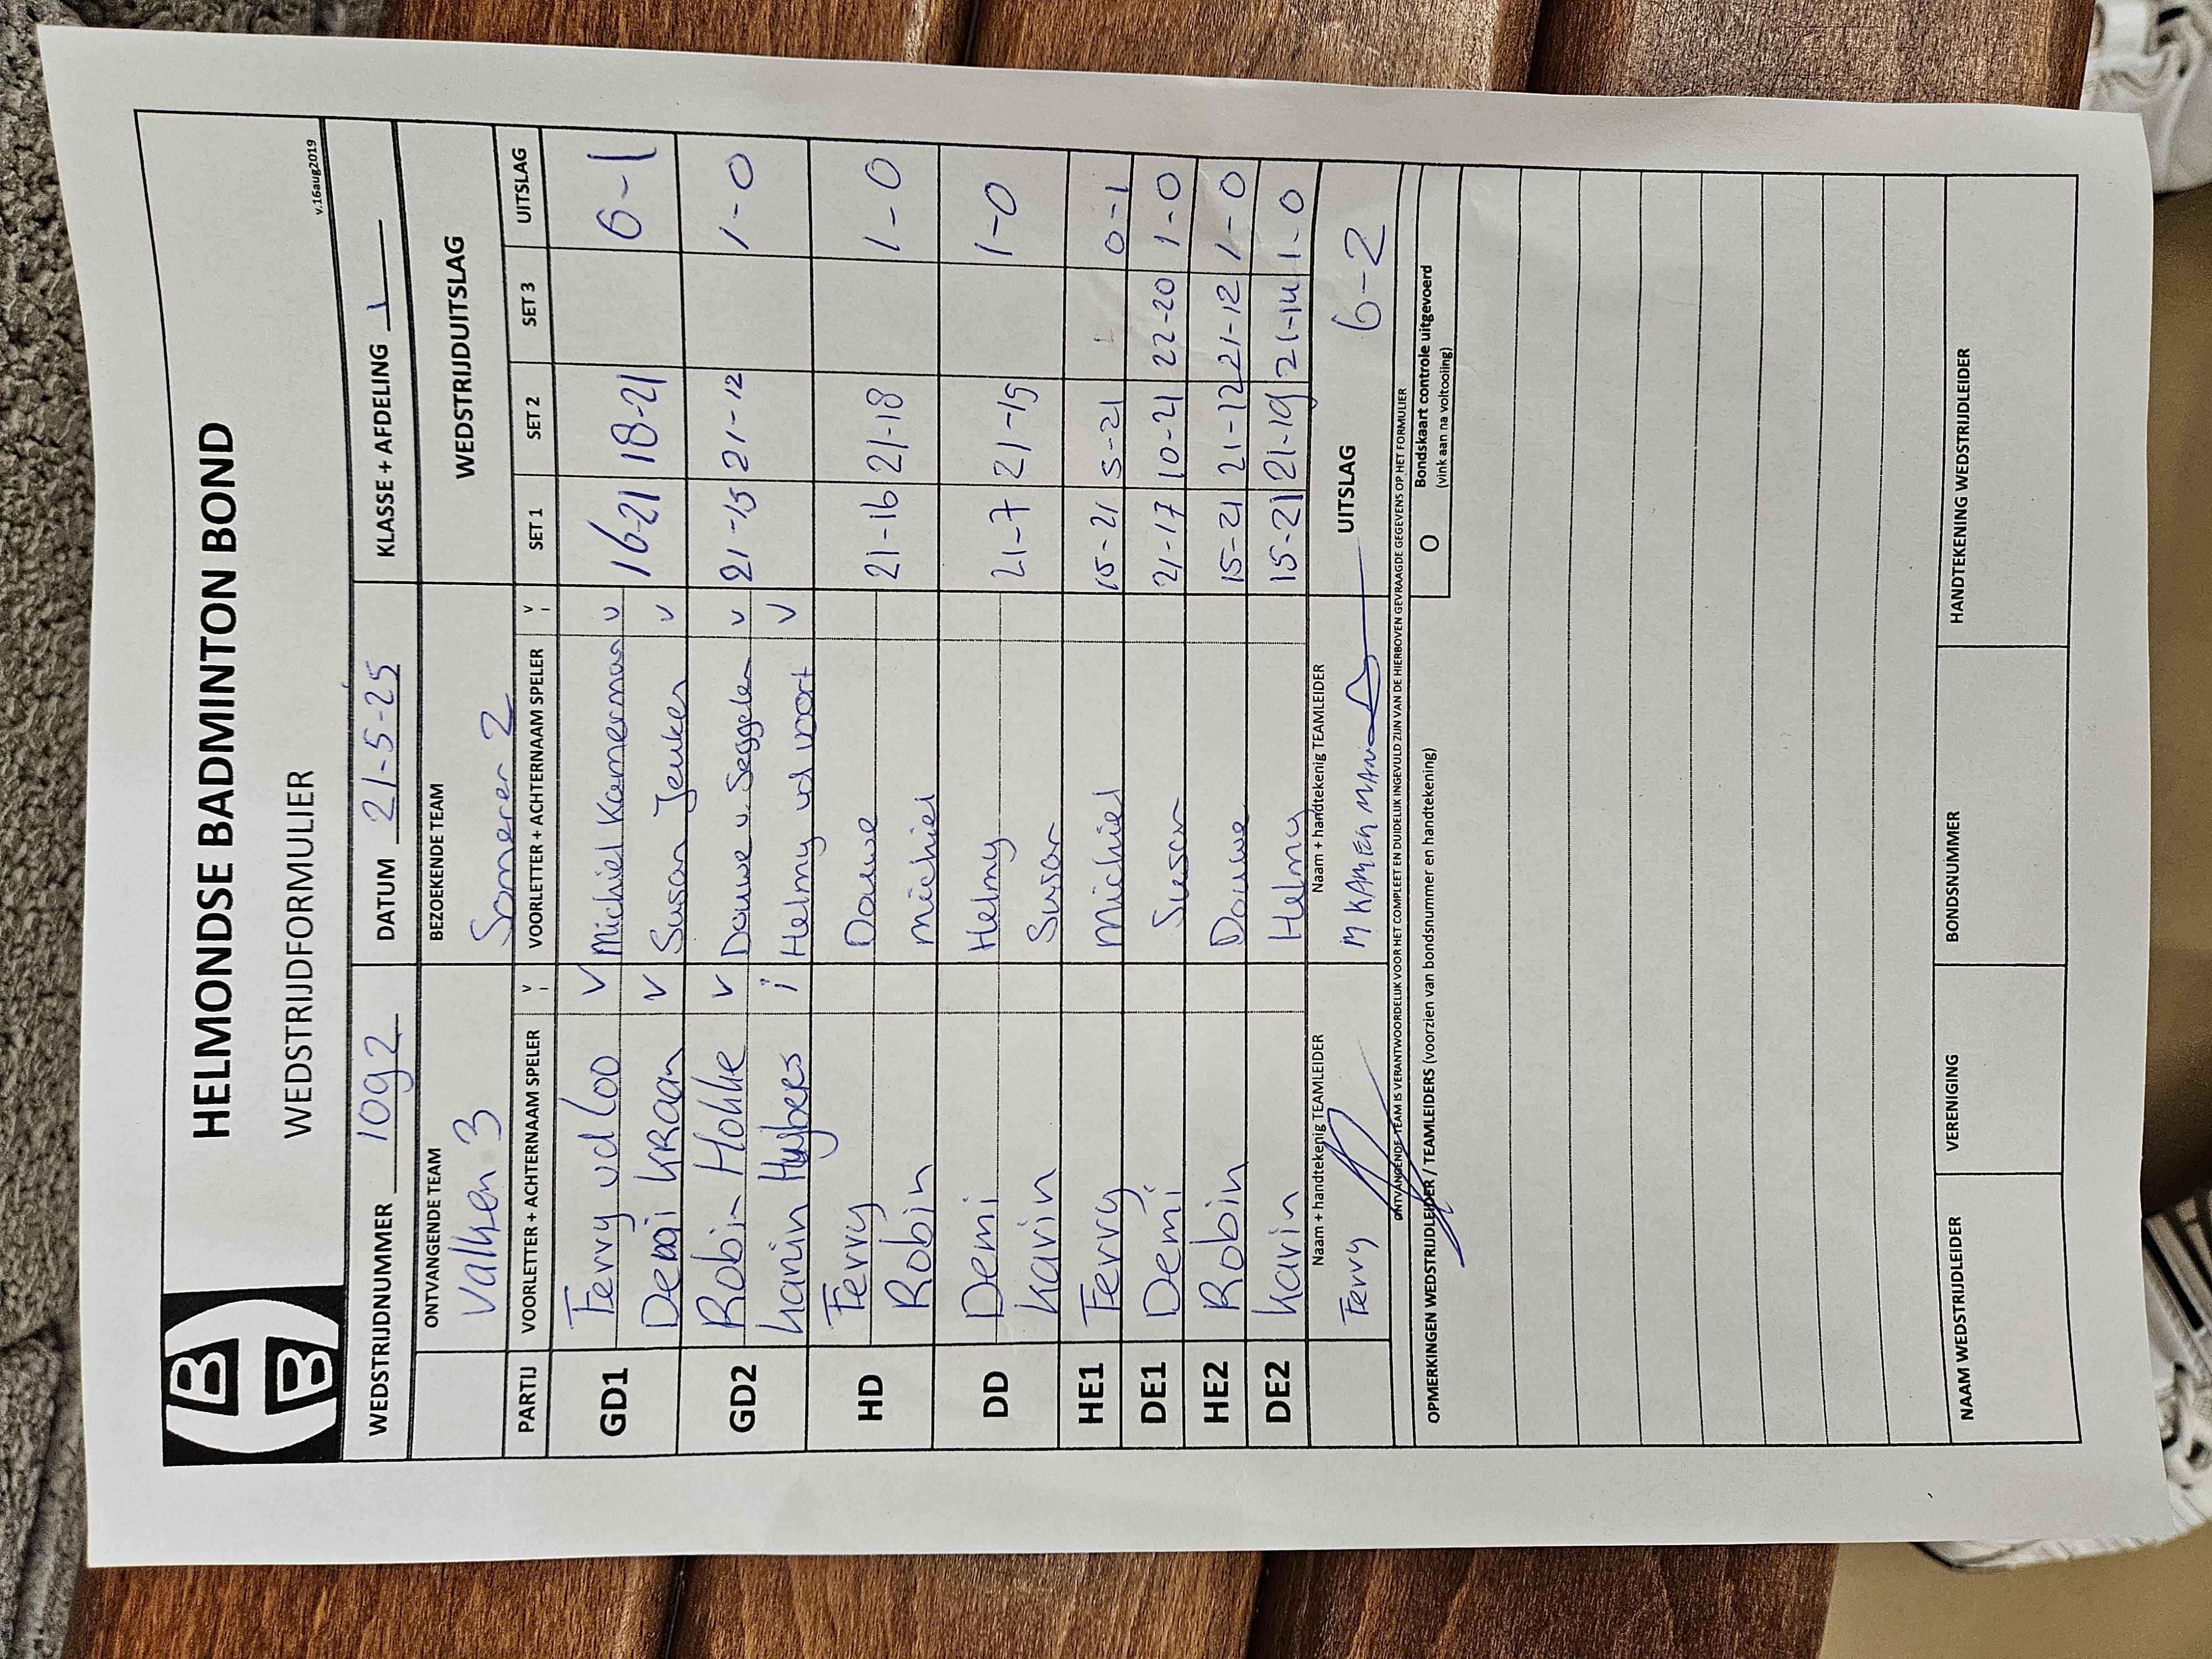 HELMONDSE BADMINTON BOND
v.16aug2019
WEDSTRIJDFORMULIER
WEDSTRIJDNUMMER 1092 DATUM 21-5-25 KLASSE + AFDELING 1
ONTVANGENDE TEAM BEZOEKENDE TEAM WEDSTRIJDUITSLAG
Valken 3 Someren 2
PARTIJ VOORLETTER + ACHTERNAAM SPELER V i VOORLETTER + ACHTERNAAM SPELER V i SET 1 SET 2 SET 3 UITSLAG
GD1 Ferry vd Loo V Michiel Kamerman V 16-21 18-21 0-1
Demi KRaan V Susan Jeuken V
GD2 Robin Hokke V Douwe v. Seggelen V 21-15 21-12 1-0
Karin Huybers i Helmy vd Voort V
HD Ferry Douwe 21-16 21-18 1-0
Robin Michiel
DD Demi Helmy 21-7 21-15 1-0
Karin Susan
HE1 Ferry Michiel 15-21 5-21 0-1
DE1 Demi Susan 21-17 10-21 22-20 1-0
HE2 Robin Douwe 15-21 21-12 21-12 1-0
DE2 Karin Helmy 15-21 21-19 21-14 1-0
Naam + handtekenig TEAMLEIDER Naam + handtekenig TEAMLEIDER
Ferry M KAMERMAN UITSLAG 6-2
ONTVANGENDE TEAM IS VERANTWOORDELIJK VOOR HET COMPLEET EN DUIDELIJK INGEVULD ZIJN VAN DE HIERBOVEN GEVRAAGDE GEGEVENS OP HET FORMULIER
OPMERKINGEN WEDSTRIJDLEIDER / TEAMLEIDERS (voorzien van bondsnummer en handtekening) O Bondskaart controle uitgevoerd
(vink aan na voltooiing)
NAAM WEDSTRIJDLEIDER VERENIGING BONDSNUMMER HANDTEKENING WEDSTRIJDLEIDER